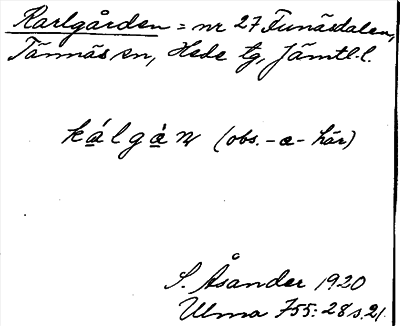 Karlgården = nr 27 Funäsdalen,
Tännäs sn, Hede tg, Jämtl. l.
kálgàn (obs. -a- här)
S. Åsander 1920
Ulma 755:28 s. 21.